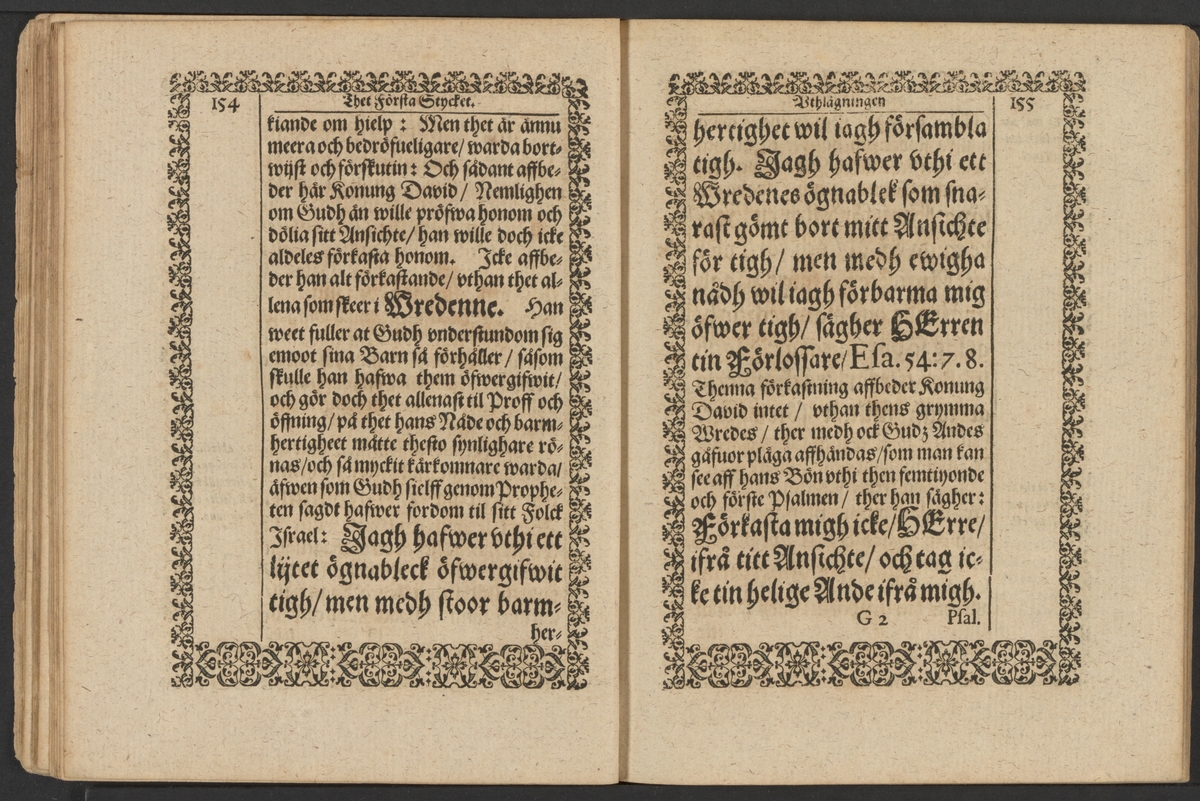 154
Thet Första Stycket.
kiande om hielp : Men thet är ännu
meera och bedröfueligare / warda bort-
wijst och förskutin : Och sådant affbe-
der här Konung David / Nemlighen
om Gudh än wille pröfwa honom och
dölia sitt Ansichte / han wille doch icke
aldeles förkasta honom. Icke affbe-
der han alt förkastande / vthan thet al-
lena som skeer i Wredenne. Han
weet fuller at Gudh vnderstundom sig
emoot sina Barn så förhåller / såsom
skulle han hafwa them öfwergifwit /
och gör doch thet allenast til Proff och
öffning / på thet hans Nåde och barm-
hertigheet måtte thesto synlighare rö-
nas / och så myckit kärkomnare warda /
äfwen som Gudh sielff genom Prophe-
ten sagdt hafwer fordom til sitt Folck
Israel : Jagh hafwer vthi ett
lijtet ögnableck öfwergifwit
tigh / men medh stoor barm-
her-
Vthlägningen
155
hertighet wil iagh försambla
tigh. Jagh hafwer vthi ett
Wredenes ögnablek som sna-
rast gömt bort mitt Ansichte
för tigh / men medh ewigha
nådh wil iagh förbarma mig
öfwer tigh / sägher HErren
tin Förlossare / Esa. 54:7.8.
Thenna förkastning affbeder Konung
David intet / vthan thens grymma
Wredes / ther medh ock Gudz Andes
gåfuor pläga affhändas / som man kan
see aff hans Bön vthi then femtiyonde
och förste Psalmen / ther han sägher :
Förkasta migh icke / HErre /
ifrå titt Ansichte / och tag ic-
ke tin helige Ande ifrå migh.
G 2 Psal.